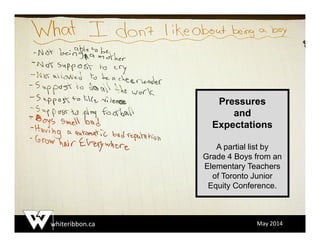 What I don't like about being a boy
-Not being able to be a mother
-Not suppost to cry
-Not allowed to be a cheerleader
-Suppost to do all the work
-Suppost to like violence
-Suppost to play football
-Boys smell bad
-Having a automatic bad reputation
-Grow hair Everywhere
Pressures
and
Expectations
A partial list by
Grade 4 Boys from an
Elementary Teachers
of Toronto Junior
Equity Conference.
W
whiteribbon.ca
May 2014